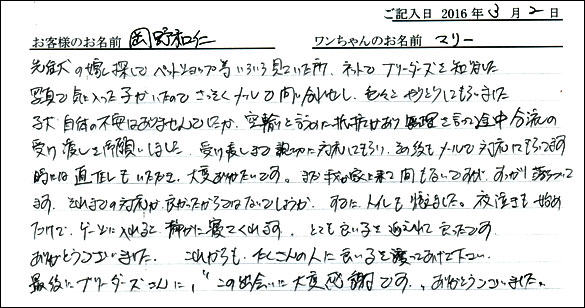 ご記入日 2016年3月2日
お客様のお名前 岡野和仁 ワンちゃんのお名前 マリー
先住犬の嫁を探して ペットショップ等いろいろ見ていた所、ネットで ブリーダーズを知りました
写真で気に入った子がいたので さっそくメールで問い合わせし、色々と やりとりしてもらいました
子犬自体の不安はありませんでしたが、空輸と言うのに抵抗があり 無理を言って途中合流の
受け渡しを御願いしました。受け渡しまで 親切に対応してもらい、その後もメールで対応してもらってます
時には 直電もいただき、大変ありがたいです。まだ我が家に来て間もないですが、すっかり落ちついて
ます。それまでの対応が良かったからではないでしょうか。すでにトイレも憶えました。夜泣きも始め
だけで、ゲージに入れると 静かに寝てくれます。とても良い子を迎えられて良かったです
ありがとうございました。これからも、たくさんの人に良い子を渡してあげて下さい。
最後にブリーダーズさんに、"この出会いに大変感謝です、ありがとうございました。